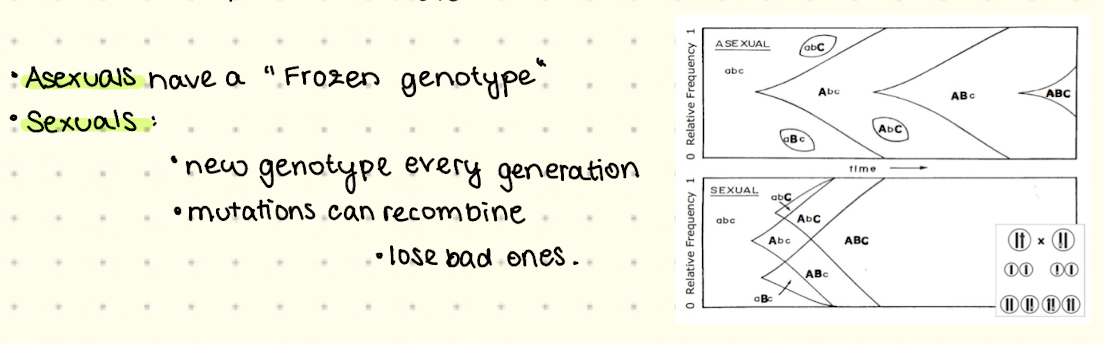 • Asexuals have a "Frozen genotype"
• Sexuals:
• new genotype every generation
• mutations can recombine
• lose bad ones.
0 Relative Frequency 1
ASEXUAL
abC
abc
Abc
ABc
ABC
AbC
aBc
time
0 Relative Frequency 1
SEXUAL
abC
abc
AbC
Abc
ABC
ABc
aBc
x